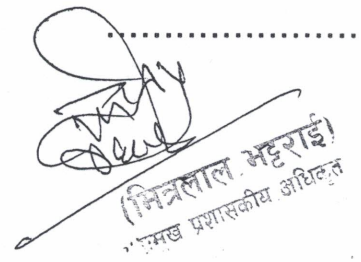 (मित्रलाल भट्टराई)
प्रमुख प्रशासकीय अधिकृत